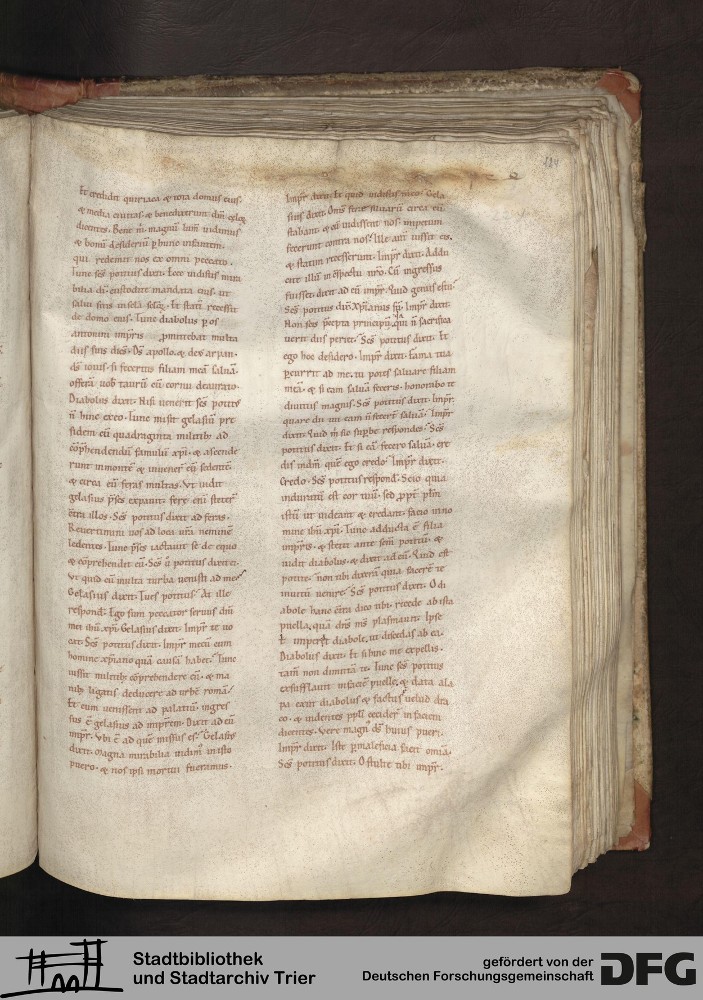 124
Et credidit quiriaca & tota domus eius.
& media ciuitas. & benedixerunt dm̄
dicentes. Bene m̄ magnū lum̄ uidimus
& bonū desideriū p̱ hunc infantem.
qui redemit nos ex omni peccato.
Tunc sc̄s potitus dixit. Ecce uidistis mira
bilia dī. custodite mandata eius. ut
salui sitis in sc̄la sc̄loȝ. Et statī recessit
de domo eius. Tunc diabolus p̱ os
antonini imp̄ris mittebat multa
diis suis dicēs. Ds̄ apollo. & ds̄ arpan.
ds̄ iouis. si feceritis filiam meā saluā.
offerā uob̄ taurū cū cornu deaurato.
Diabolus dixit. Nisi uenerit sc̄s potitus
n̄ hinc exeo. Tunc misit gelasiū pre
sidem cū quadraginta militib; ad
cōp̱hendendū famulū xp̄i. & ascende
runt in monte & inuener̄ eū sedentē.
& circa eū feras multas. Vt uidit
gelasius p̄ses expauit. fere enī steter̄
ctra illos. Sc̄s potitus dixit ad feras.
Reuertimini uos ad loca ura neminē
ledentes. Tunc p̄ses iactauit se de equo
& cōp̱hendit eū. Sc̄s u̇ potitus dixit ei.
Vt quid cū multa turba uenisti ad me?
Gelasius dixit. Tu es potitus? At ille
respond̄. Ego sum peccator seruus dn̄i
mei ihu xp̄i. Gelasius dixit. Imp̄r te uo
cat. Sc̄s potitus dixit. Imp̄r mecū cum
homine xp̄iano quā causā habet? Tunc
iussit militib; cōp̱hendere eū. & ma
nib; ligatis deducere ad urbē romā.
Et cum uenissent ad palatiū. ingres
sus ē gelasius ad imp̄rem. Dixit ad eū
imp̄r. Vbi ē ad quē missus es? Gelasius
dixit. Magna mirabilia uidim; in isto
puero. & nos ipsi mortui fueramus.
Imp̄r dixit. Et quid uidistis in eo? Gela
sius dixit. Oms̄ fere siluarū circa eū
stabant. & cū uidissent nos. impetum
fecerunt contra nos. Ille aut̄ iussit eis.
& statim recesserunt. Imp̄r dixit. Addu
cite illū in c̄spectu nr̄o. Cū ingressus
fuisset. dixit ad eū imp̄r. Quid gerus es tu?
Sc̄s potitus dix̄. Xp̄ianus sū. Imp̄r dixit.
Non scis p̄cepta principū. quia qui n̄ sacrifica
uerit diis periet. Sc̄s potitus dixit. Et
ego hoc desidero. Imp̄r dixit. Fama tua
p̱currit ad me. tu potes saluare filiam
meā. & si eam saluā feceris. honorabo te
diuitiis magnis. Sc̄s potitus dixit. Imp̄r.
quare dii tui eam n̄ fecer̄t saluā? Imp̄r
dixit. Quid m̄ sic sup̱be respondes? Sc̄s
potitus dixit. Et si eā fecero saluā. cre
dis in dm̄. quē ego credo? Imp̄r dixit.
Credo. Sc̄s potitus respond̄. Scio quia
induratū est cor tuū. sed p̱pt̄ pl̄m
istū ut uideant & credant. facio in no
mine ihu xp̄i. Tunc adducta ē filia
imp̄ris. & stetit ante sc̄m potitū. &
uidit diabolus. & dixit ad eū. Quid est
potite? non tibi dixerā quia facerē te
inuitū uenire? Sc̄s potitus dixit. O di
abole hanc c̄tra dico tibi. recede ab ista
puella. quā dn̄s ms̄ plasmauit. Ipse
t̄ imperat diabole. ut discedas ab ea.
Diabolus dixit. Et si hinc me expellis.
tam̄ non dimittā te. Tunc sc̄s potitus
exsufflauit in faciē puelle. & data ala
pa exiit diabolus & factus uelud dra
co. & uidentes pp̄li cecider̄ in faciem
dicentes. Vere magn; ds̄ huius pueri.
Imp̄r dixit. Iste p̱ maleficia facit omia.
Sc̄s potitus dixit. O stulte tibi imp̄r.
Stadtbibliothek
und Stadtarchiv Trier
gefördert von der
Deutschen Forschungsgemeinschaft
DFG